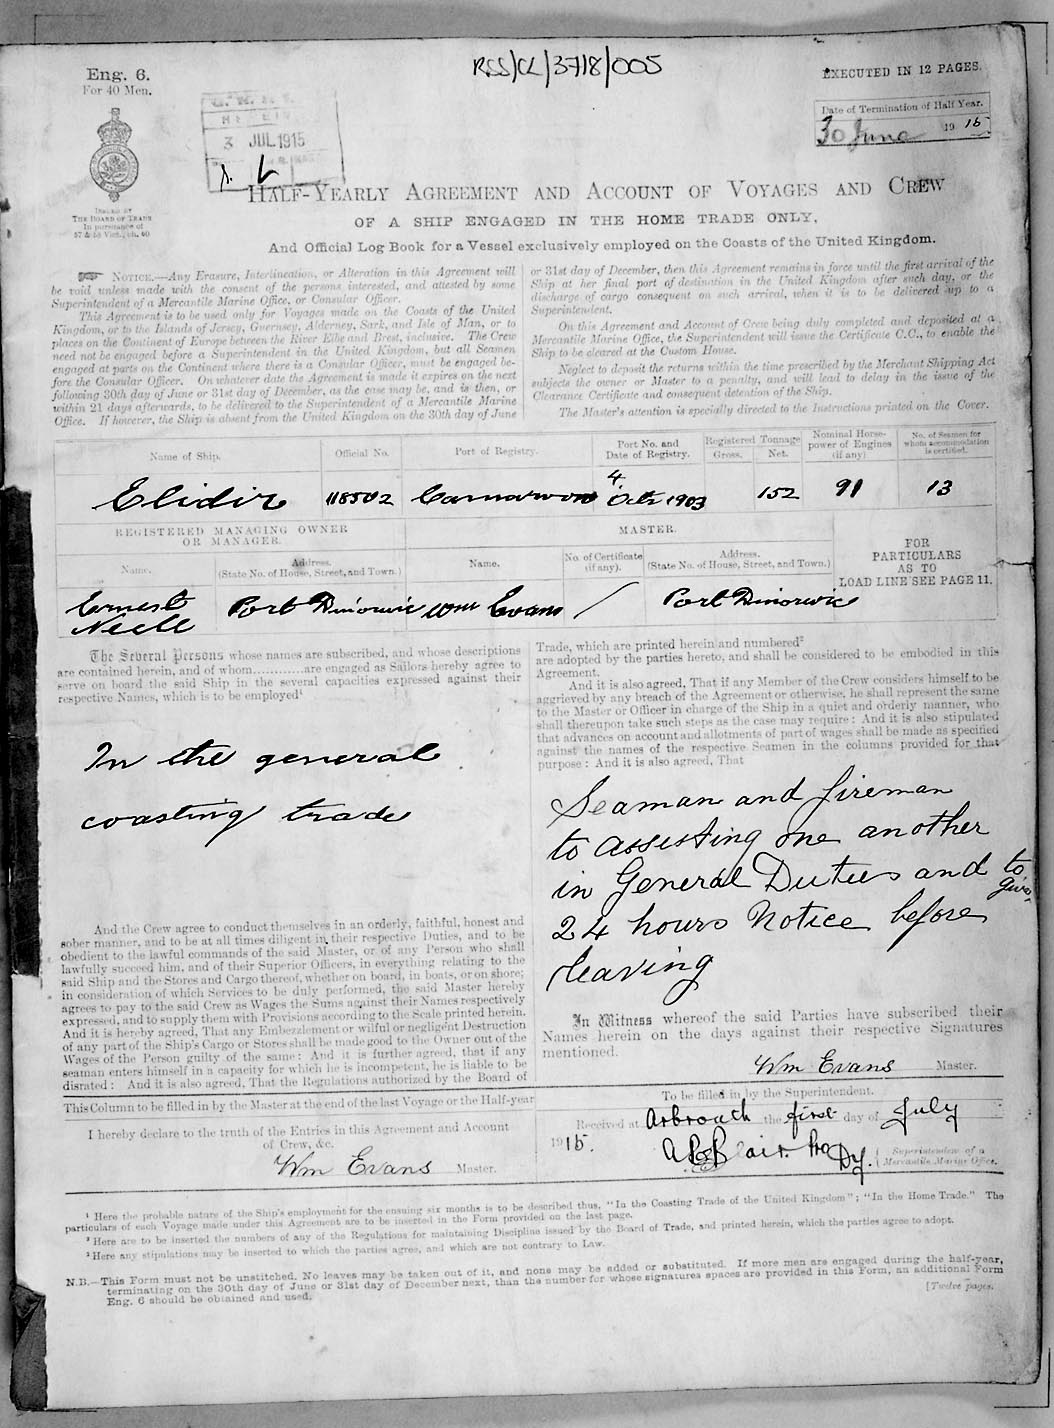 RSS/CL/3718/005
Eng. 6.
For 40 Men.
EXECUTED IN 12 PAGES.
Date of Termination of Half Year.
30 June 1915
3 JUL 1915
ISSUED BY
THE BOARD OF TRADE
In pursuance of
57 & 58 Vict., ch. 60
HALF-YEARLY AGREEMENT AND ACCOUNT OF VOYAGES AND CREW
OF A SHIP ENGAGED IN THE HOME TRADE ONLY,
And Official Log Book for a Vessel exclusively employed on the Coasts of the United Kingdom.
NOTICE.—Any Erasure, Interlineation, or Alteration in this Agreement will
be void unless made with the consent of the persons interested, and attested by some
Superintendent of a Mercantile Marine Office, or Consular Officer.
This Agreement is to be used only for Voyages made on the Coasts of the United
Kingdom, or to the Islands of Jersey, Guernsey, Alderney, Sark, and Isle of Man, or to
places on the Continent of Europe between the River Elbe and Brest, inclusive. The Crew
need not be engaged before a Superintendent in the United Kingdom, but all Seamen
engaged at parts on the Continent where there is a Consular Officer, must be engaged be-
fore the Consular Officer. On whatever date the Agreement is made it expires on the next
following 30th day of June or 31st day of December, as the case may be, and is then, or
within 21 days afterwards, to be delivered to the Superintendent of a Mercantile Marine
Office. If however, the Ship is absent from the United Kingdom on the 30th day of June
or 31st day of December, then this Agreement remains in force until the first arrival of the
Ship at her final port of destination in the United Kingdom after such day, or the
discharge of cargo consequent on such arrival, when it is to be delivered up to a
Superintendent.
On this Agreement and Account of Crew being duly completed and deposited at a
Mercantile Marine Office, the Superintendent will issue the Certificate C.C., to enable the
Ship to be cleared at the Custom House.
Neglect to deposit the returns within the time prescribed by the Merchant Shipping Act
subjects the owner or Master to a penalty, and will lead to delay in the issue of the
Clearance Certificate and consequent detention of the Ship.
The Master's attention is specially directed to the Instructions printed on the Cover.
Name of Ship. Official No. Port of Registry. Port No. and Date of Registry. Registered Tonnage Gross. Net. Nominal Horse-power of Engines (if any) No. of Seamen for whom accommodation is certified.
Elidir 118502 Carnarvon 4 Oct 1903 152 91 13
REGISTERED MANAGING OWNER
OR MANAGER.
MASTER.
FOR
PARTICULARS
AS TO
LOAD LINE SEE PAGE 11.
Name. Address. (State No. of House, Street, and Town.) Name. No. of Certificate (if any). Address. (State No. of House, Street, and Town.)
Ernest Neele Port Dinorwic Wm Evans / Port Dinorwic
The Several Persons whose names are subscribed, and whose descriptions
are contained herein, and of whom............are engaged as Sailors hereby agree to
serve on board the said Ship in the several capacities expressed against their
respective Names, which is to be employed¹
In the general
coasting trade
And the Crew agree to conduct themselves in an orderly, faithful, honest and
sober manner, and to be at all times diligent in their respective Duties, and to be
obedient to the lawful commands of the said Master, or of any Person who shall
lawfully succeed him, and of their Superior Officers, in everything relating to the
said Ship and the Stores and Cargo thereof, whether on board, in boats, or on shore;
in consideration of which Services to be duly performed, the said Master hereby
agrees to pay to the said Crew as Wages the Sums against their Names respectively
expressed, and to supply them with Provisions according to the Scale printed herein.
And it is hereby agreed, That any Embezzlement or wilful or negligent Destruction
of any part of the Ship's Cargo or Stores shall be made good to the Owner out of the
Wages of the Person guilty of the same: And it is further agreed, that if any
seaman enters himself in a capacity for which he is incompetent, he is liable to be
disrated: And it is also agreed, That the Regulations authorized by the Board of
Trade, which are printed herein and numbered²
are adopted by the parties hereto, and shall be considered to be embodied in this
Agreement.
And it is also agreed, That if any Member of the Crew considers himself to be
aggrieved by any breach of the Agreement or otherwise, he shall represent the same
to the Master or Officer in charge of the Ship in a quiet and orderly manner, who
shall thereupon take such steps as the case may require: And it is also stipulated
that advances on account and allotments of part of wages shall be made as specified
against the names of the respective Seamen in the columns provided for that
purpose: And it is also agreed, That
Seaman and fireman
to assisting one another
in General Duties and to give
24 hours Notice before
leaving
In Witness whereof the said Parties have subscribed their
Names herein on the days against their respective Signatures
mentioned.
Wm Evans Master.
This Column to be filled in by the Master at the end of the last Voyage or the Half-year
I hereby declare to the truth of the Entries in this Agreement and Account
of Crew, &c.
Wm Evans Master.
To be filled in by the Superintendent.
Received at Arbroath the first day of July
1915.
Blair Dy. Superintendent of a Mercantile Marine Office.
¹ Here the probable nature of the Ship's employment for the ensuing six months is to be described thus, "In the Coasting Trade of the United Kingdom"; "In the Home Trade." The
particulars of each Voyage made under this Agreement are to be inserted in the Form provided on the last page.
² Here are to be inserted the numbers of any of the Regulations for maintaining Discipline issued by the Board of Trade, and printed herein, which the parties agree to adopt.
³ Here any stipulations may be inserted to which the parties agree, and which are not contrary to Law.
N.B.—This Form must not be unstitched. No leaves may be taken out of it, and none may be added or substituted. If more men are engaged during the half-year,
terminating on the 30th day of June or 31st day of December next, than the number for whose signatures spaces are provided in this Form, an additional Form
Eng. 6 should be obtained and used.
[Twelve pages.